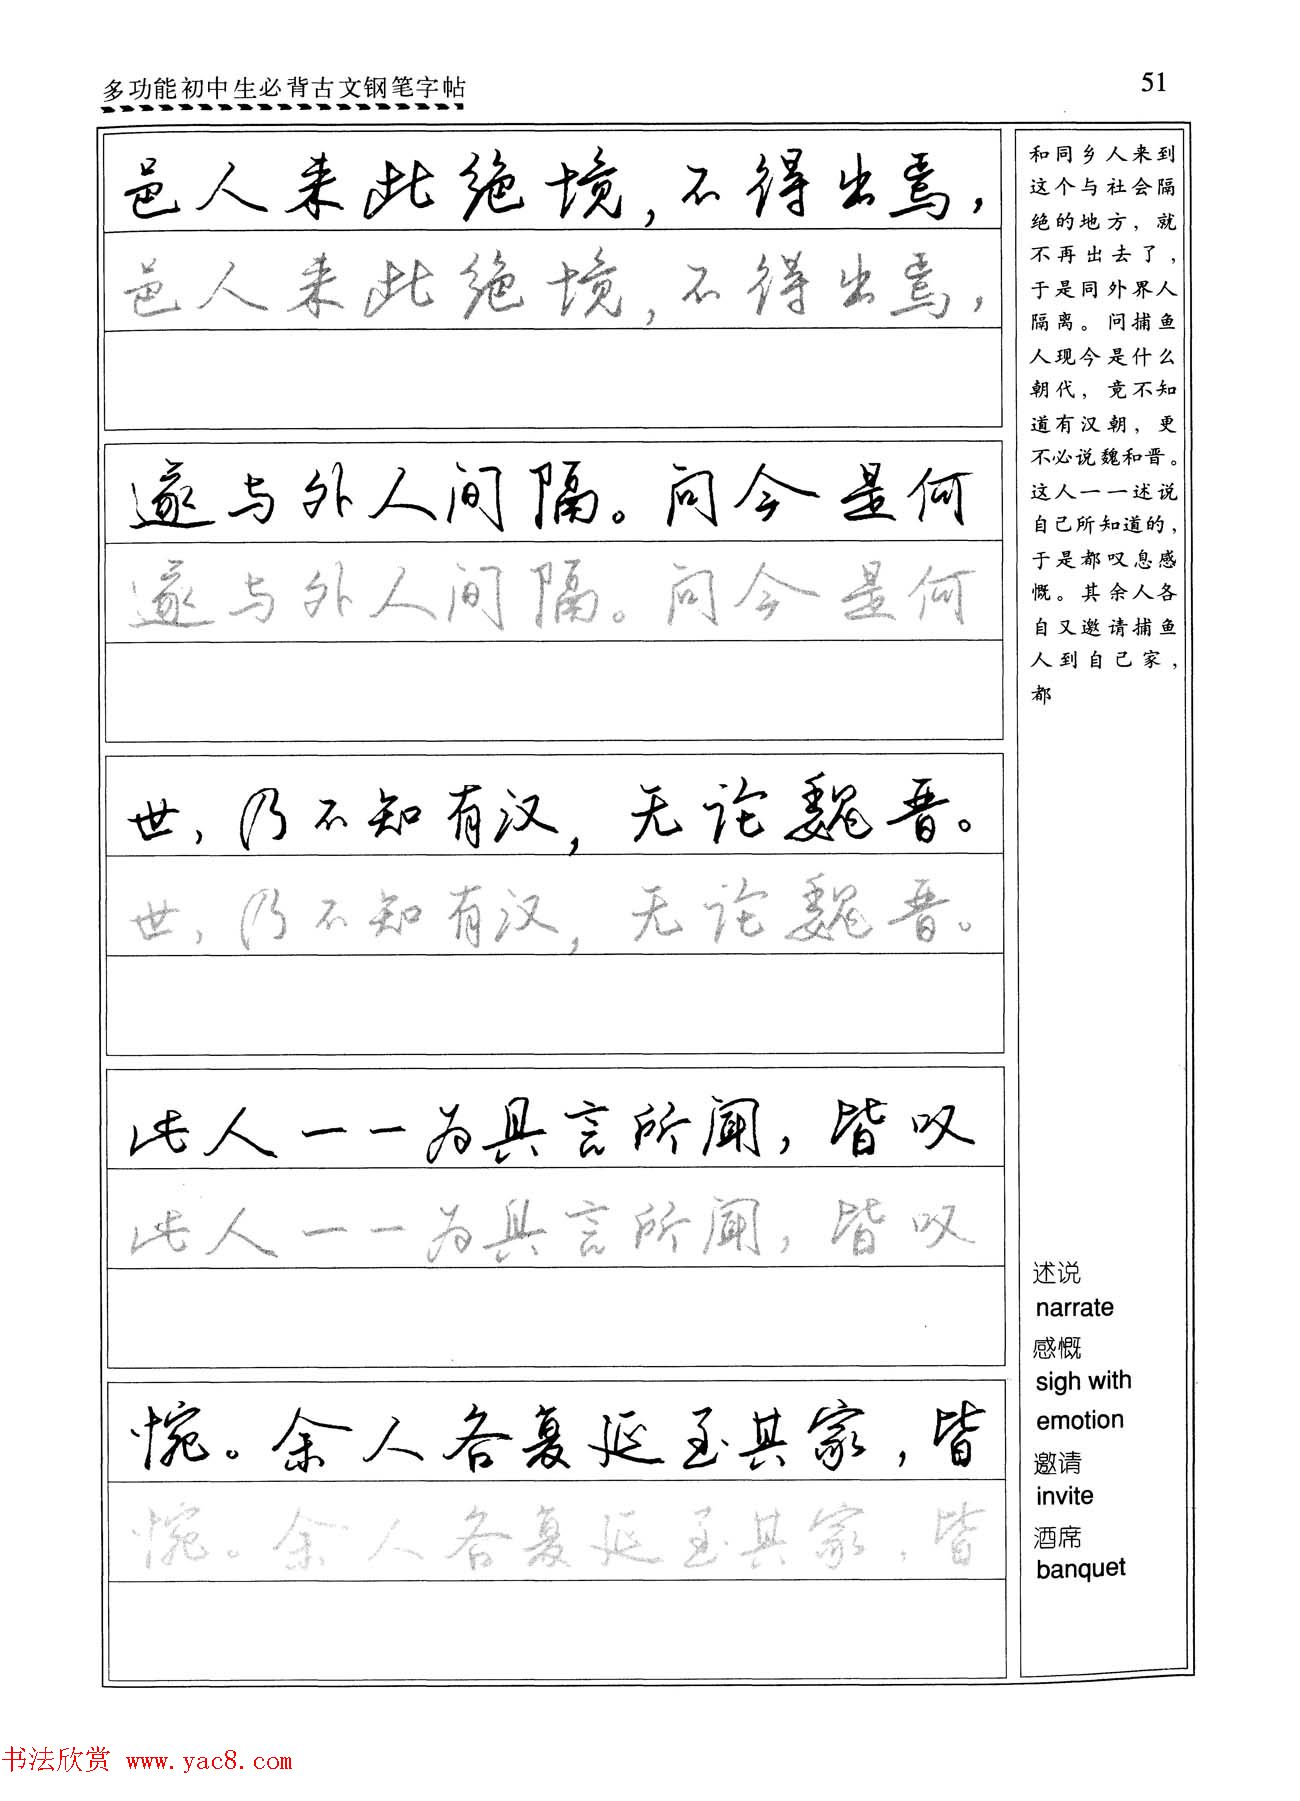 多功能初中生必背古文钢笔字帖
51
邑人来此绝境,不得出焉,
邑人来此绝境,不得出焉,
遂与外人间隔。问今是何
遂与外人间隔。问今是何
世,乃不知有汉,无论魏晋。
世,乃不知有汉,无论魏晋。
此人一一为具言所闻,皆叹
此人一一为具言所闻,皆叹
惋。余人各复延至其家,皆
惋。余人各复延至其家,皆
和同乡人来到
这个与社会隔
绝的地方,就
不再出去了,
于是同外界人
隔离。问捕鱼
人现今是什么
朝代,竟不知
道有汉朝,更
不必说魏和晋。
这人一一述说
自己所知道的,
于是都叹息感
慨。其余人各
自又邀请捕鱼
人到自己家,
都
述说
narrate
感慨
sigh with
emotion
邀请
invite
酒席
banquet
书法欣赏 www.yac8.com